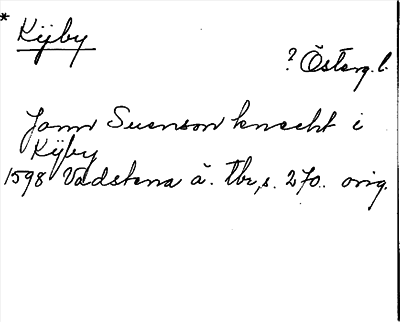 * Kijby
? Österg.l.
Jonn Suenson knecht i
Kÿby
1598 Vadstena ä. tbr, s. 270. orig.